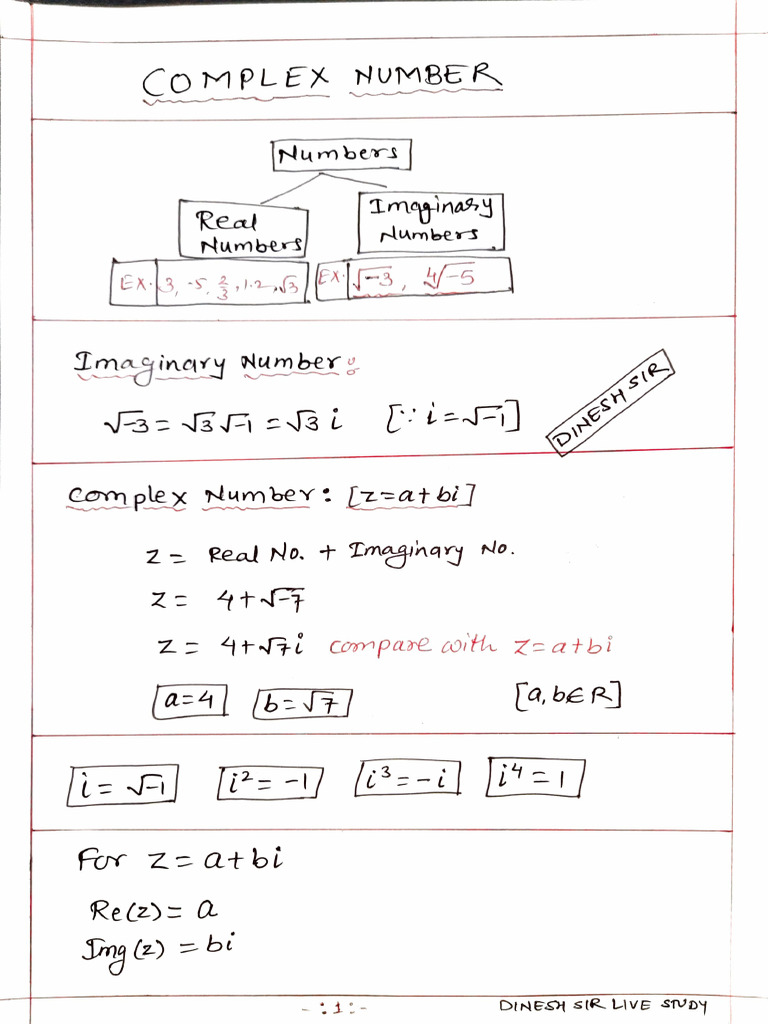 COMPLEX NUMBER
Numbers
Real Numbers
Imaginary Numbers
EX. 3, -5, 2/3, 1.2, √3
EX. √-3, ∜-5
Imaginary Number:
√-3 = √3 √-1 = √3 i [∵ i = √-1]
DINESH SIR
Complex Number: [z=a+bi]
z = Real No. + Imaginary No.
z = 4+√-7
z = 4+√7i compare with z=a+bi
a=4 b=√7 [a,b∈R]
i = √-1 i² = -1 i³ = -i i⁴ = 1
For z = a+bi
Re(z) = a
Img(z) = bi
- : 1 : -
DINESH SIR LIVE STUDY